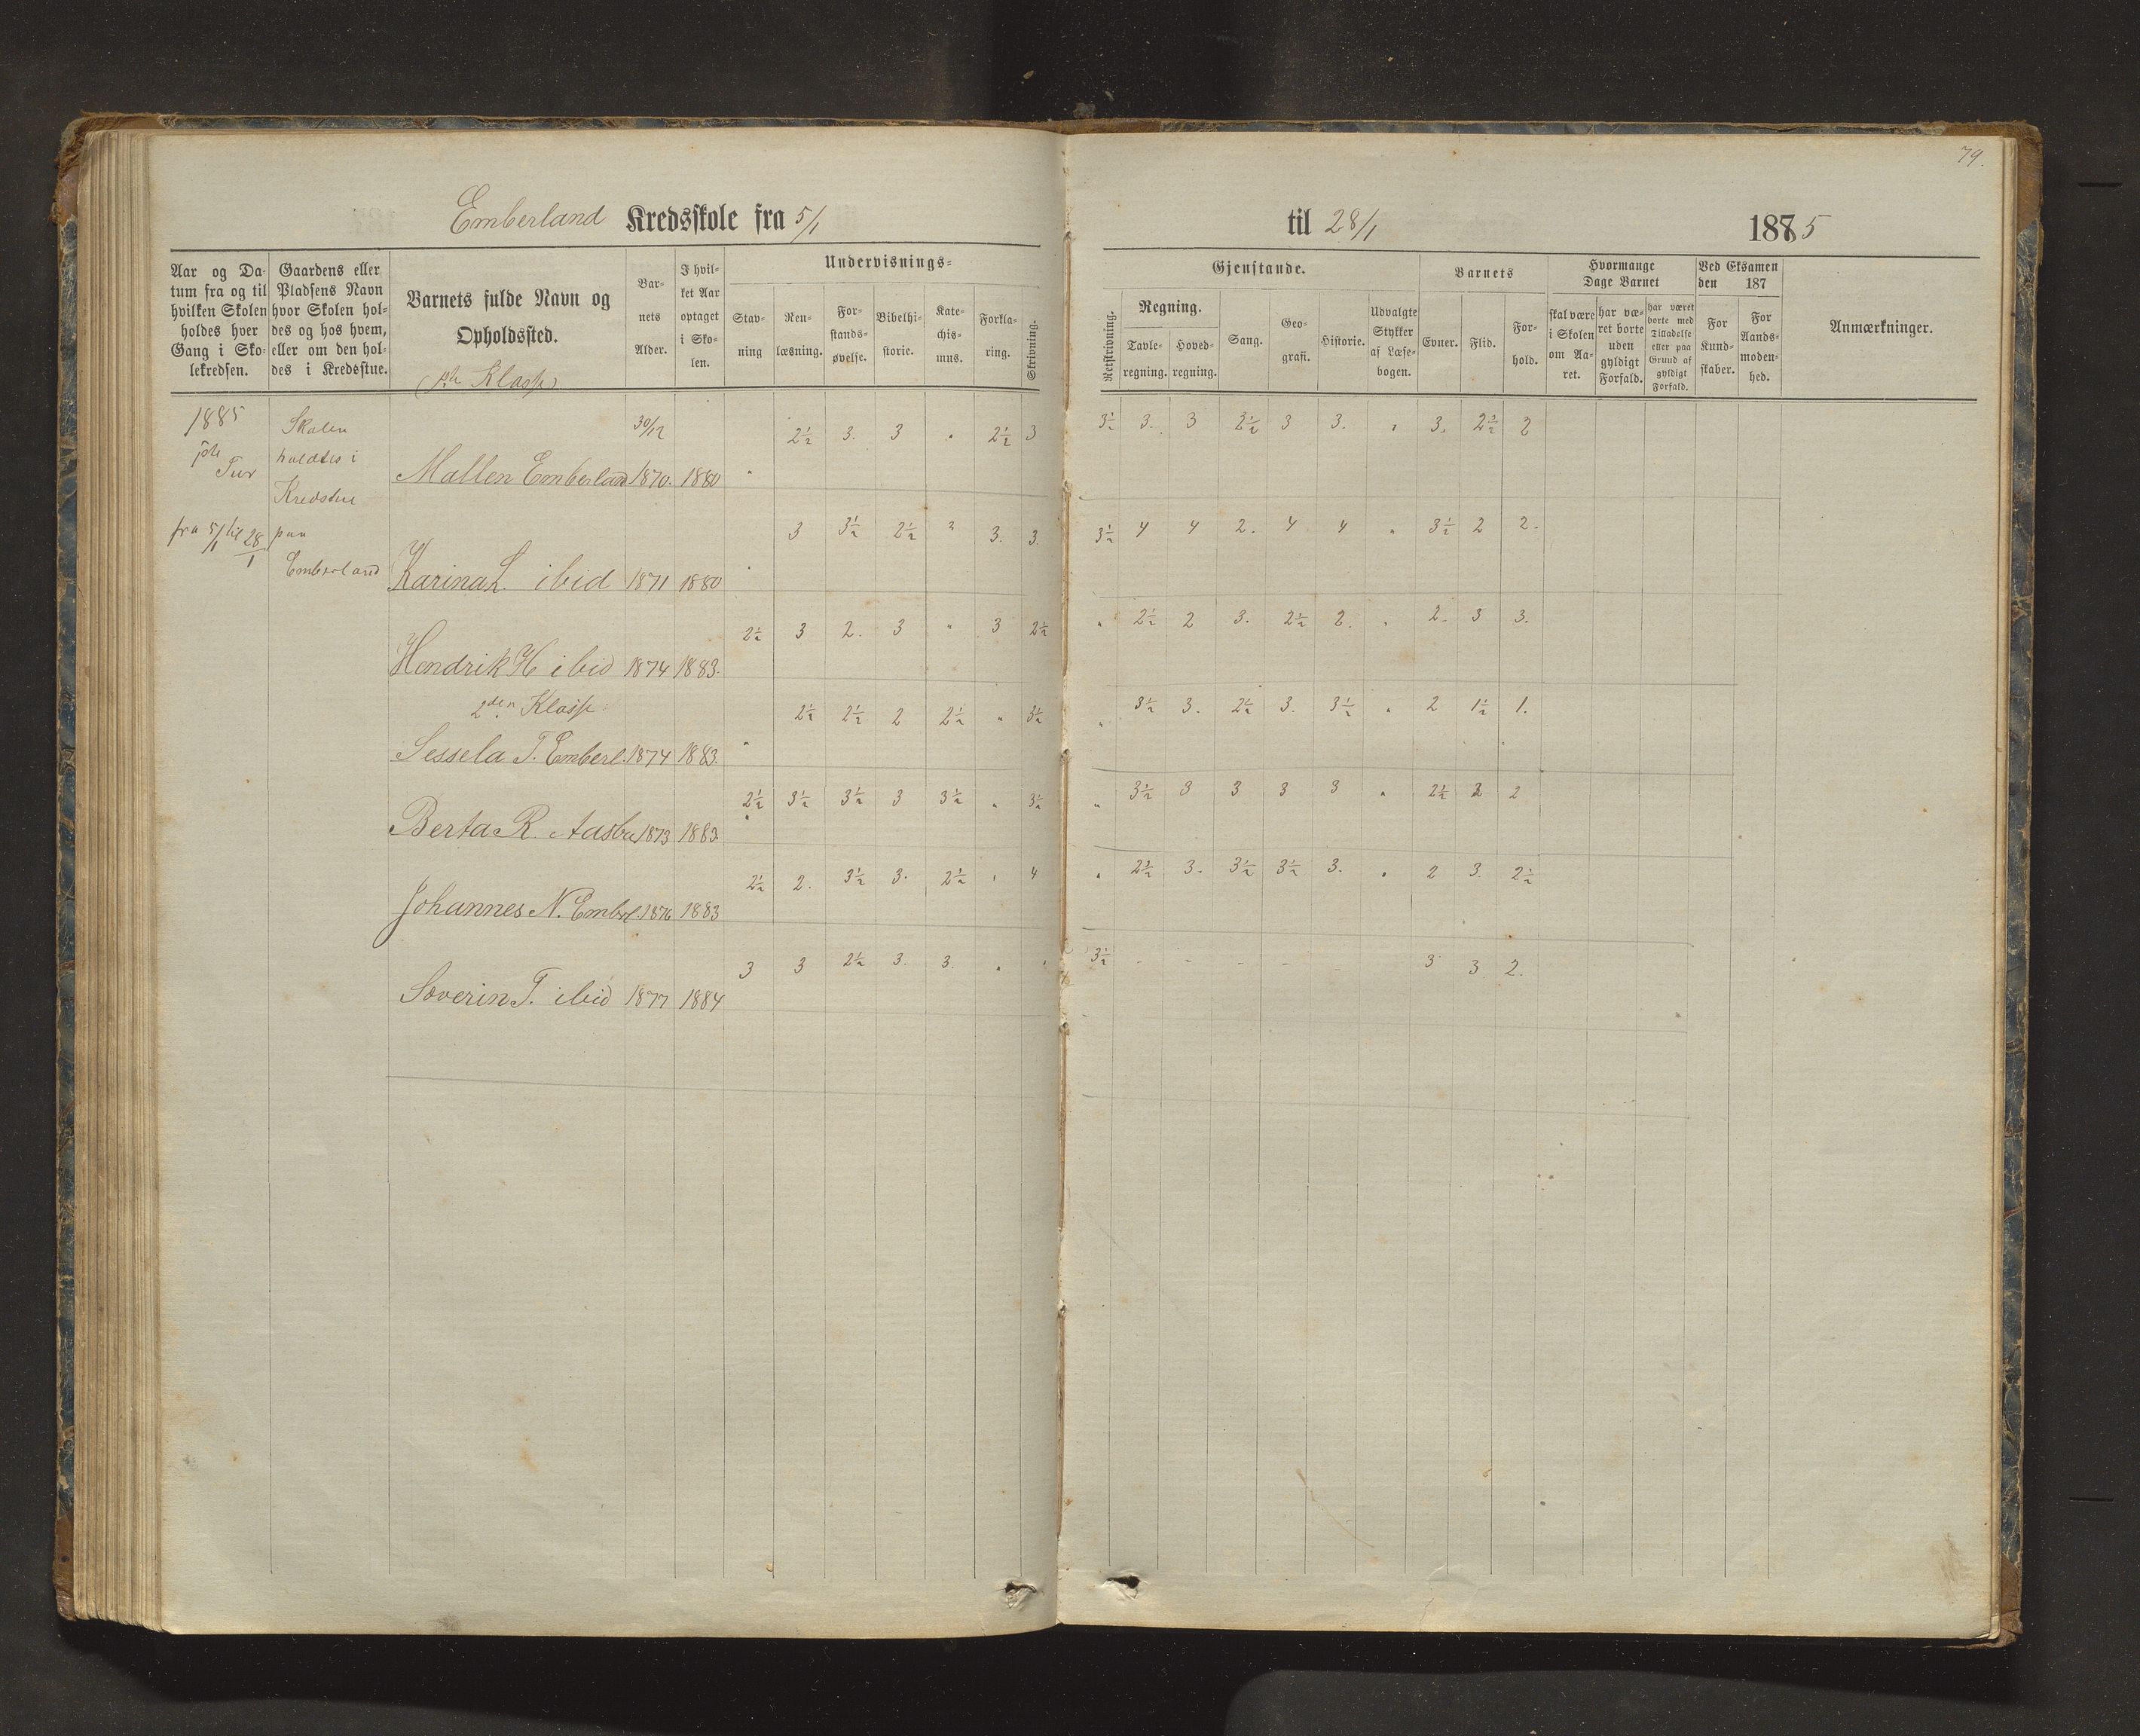 79.
Emberland Kredsskole fra 5/1 til 28/1 1885
Aar og Da-
tum fra og til
hvilken Skolen
holdes hver
Gang i Sko-
lekredsen.
Gaardens eller
Pladsens Navn
hvor Skolen hol-
des og hos hvem,
eller om den hol-
des i Kredsstue.
Barnets fulde Navn og
Opholdssted.
Klasse
Bar-
nets
Alder.
I hvil-
ket Aar
optaget
i Sko-
len.
Undervisnings-
Stav-
ning
Ren-
læsning.
For-
stands-
øvelse.
Bibelhi-
storie.
Kate-
chis-
mus.
Forkla-
ring.
Skrivning.
Gjenstande.
Retskrivning.
Regning.
Tavle-
regning.
Hoved-
regning.
Sang.
Geo-
grafi.
Historie.
Udvalgte
Stykker
af Læse-
bogen.
Barnets
Evner.
Flid.
For-
hold.
Hvormange
Dage Barnet
skal være
i Skolen
om Aa-
ret.
har væ-
ret borte
uden
gyldigt
Forfald.
har været
borte med
Tilladelse
eller paa
Grund af
gyldigt
Forfald.
Ved Eksamen
den 187
For
Kund-
skaber.
For
Aands-
moden-
hed.
Anmærkninger.
1885
Tur
fra 5/1 til 28/1
Skolen
holdtes i
Kredstue
paa
Emberland
30/12
Mallen Emberland 1870. 1880 " 2½ 3. 3 " 2½ 3 3½ 3. 3 2½ 3 3. " 3. 2½ 2
Karina L. ibid 1871 1880 " 3 3½ 2½ " 3. 3. 3½ 4 4 2. 4 4 " 3½ 2 2.
Hendrik H ibid 1874 1883. 2½ 3 2. 3 " 3 2½ " 2½ 2 3. 2½ 2. " 2. 3 3.
2den Klasse
Sessela T. Emberl. 1874 1883. " 2½ 2½ 2 2½ " 3½ " 3½ 3. 2½ 3. 3½ " 2 1½ 1.
Berta R. Aasbu 1873 1883 2½ 3½ 3½ 3 3½ " 3½ " 3½ 3 3 3 3 " 2½ 2 2
Johannes N. Embrl. 1876 1883 2½ 2. 3½ 3. 2½ " 4 " 2½ 3. 3½ 3½ 3. " 2 3. 2½
Soverin T. ibid 1877 1884 3 3 2½ 3. 3. " " 3½ - - - - - 3 3 2.